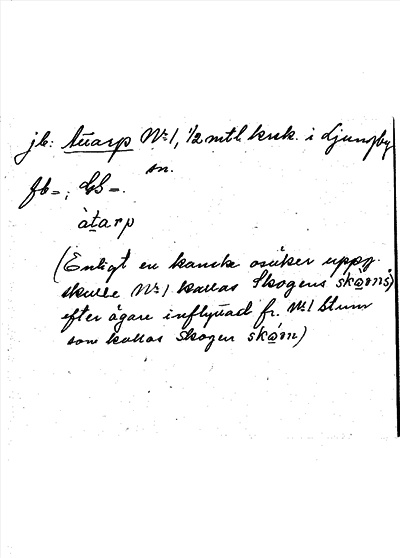 jb: Atarp No 1, 1/2 mtl krsk. i Ljungby
sn.
fb =; GS =.
àtarp
(Enligt en kanske osäker uppg.
skulle No 1 kallas Skogens
efter ägare inflyttad fr. No 1
som kallas Skogen